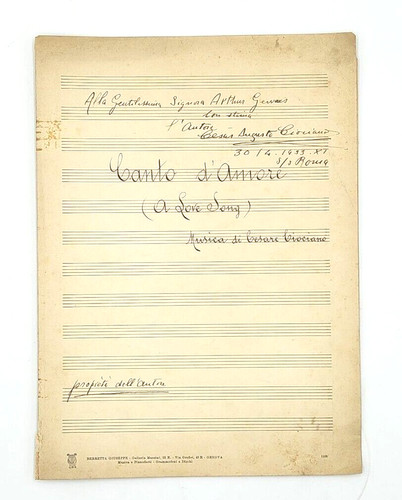 Alla Gentilissima Signora Arthur Gervaes
con stima
l'Autore
Cesar Augusto Ciociano
30/4.1933.XI
S/S Roma
Canto d'Amore
(A Love Song)
Musica di Cesare Ciociano
proprietà dell'Autore
BERRETTA GIUSEPPE - Galleria Mazzini,
Musica e Pianoforti - Grammofoni e Dischi